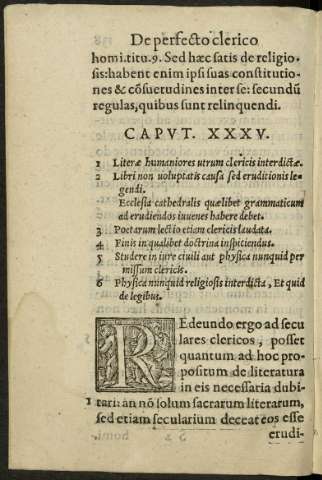 De perfecto clerico
homi.titu.9. Sed hæc satis de religio-
sis:habent enim ipsi suas constitutio-
nes & cõsuetudines inter se: secundũ
regulas,quibus sunt relinquendi.
CAPVT. XXXV.
1 Literæ humaniores utrum clericis interdictæ.
2 Libri non uoluptatis causa sed eruditionis le-
gendi.
Ecclesia cathedralis quælibet grammaticum
ad erudiendos iuuenes habere debet.
3 Poetarum lectio etiam clericis laudata.
4 Finis in qualibet doctrina inspiciendus.
5 Studere in iure ciuili aut physica nunquid per
missum clericis.
6 Physica nunquid religiosis interdicta, Et quid
de legibus.
REdeundo ergo ad secu
lares clericos, posset
quantum ad hoc pro-
positum de literatura
in eis necessaria dubi-
1 tari: an nõ solum sacrarum literarum,
sed etiam secularium deceat eos esse
erudi-